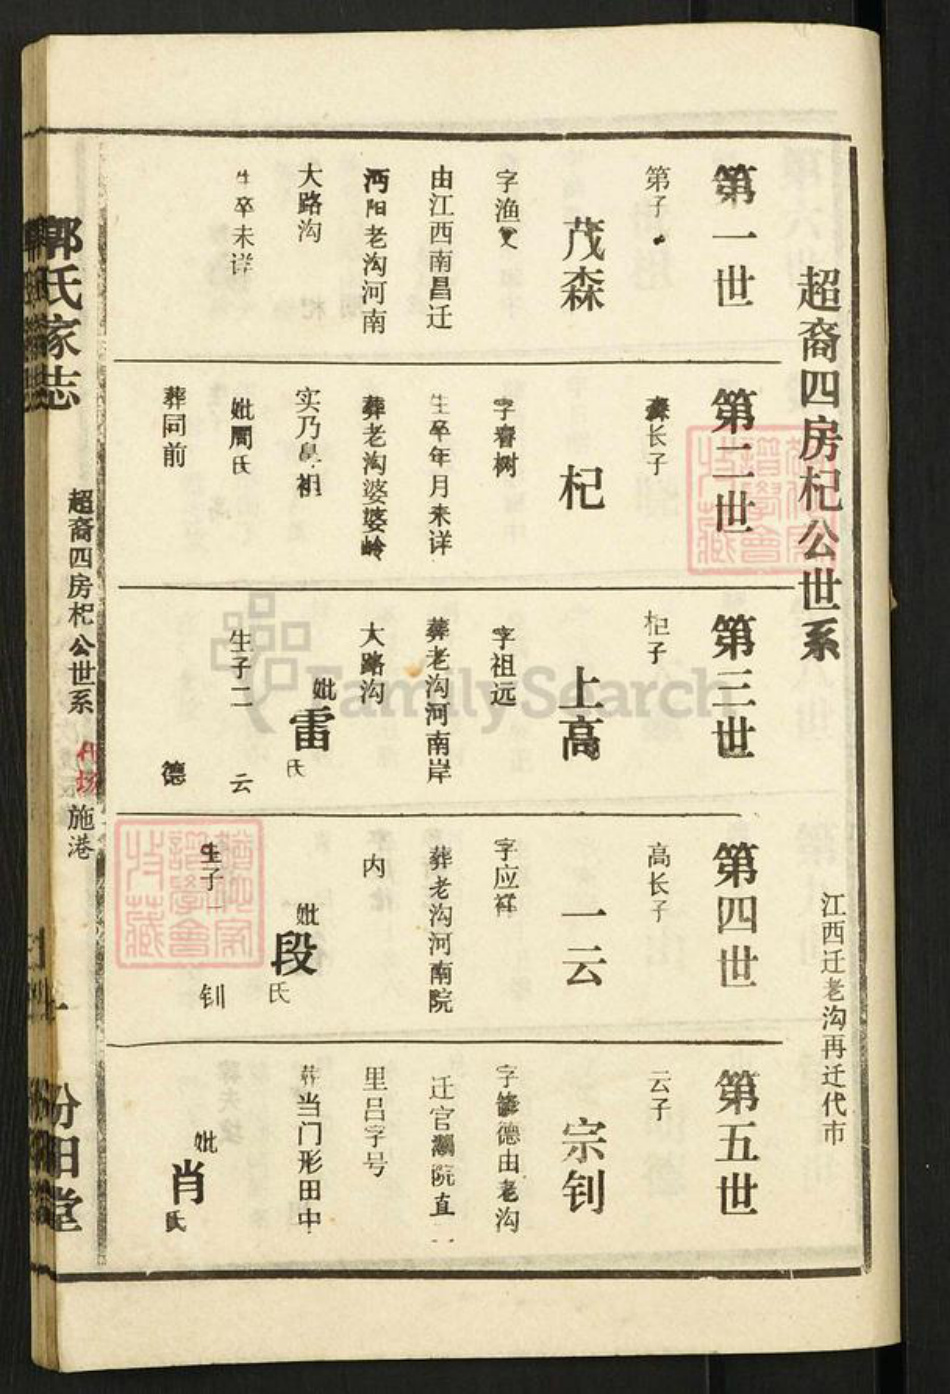 超裔四房杞公世系
江西迁老沟再迁代市
第一世
第子
茂森
字渔
由江西南昌迁
沔阳老沟河南
大路沟
生卒未详
第二世
森长子
杞
字春树
生卒年月未详
葬老沟婆婆岭
实乃鼻祖
妣周氏
葬同前
第三世
杞子
上高
字祖远
葬老沟河南岸
大路沟
妣雷氏
生子二 云
德
第四世
高长子
一云
字应祥
葬老沟河南院
内
妣段氏
生子一 钊
第五世
云子
宗钊
字德由老沟
迁官院直一
里吕字号
葬当门形田中
妣肖氏
郭氏家志
超裔四房杞公世系
施港
汾阳堂
FamilySearch